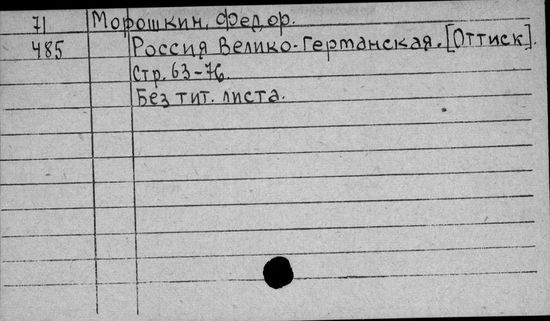 71 Морошкин, Федор.
485 Россия Велико-Германская. [Оттиск].
Стр. 63-76.
Без тит. листа.